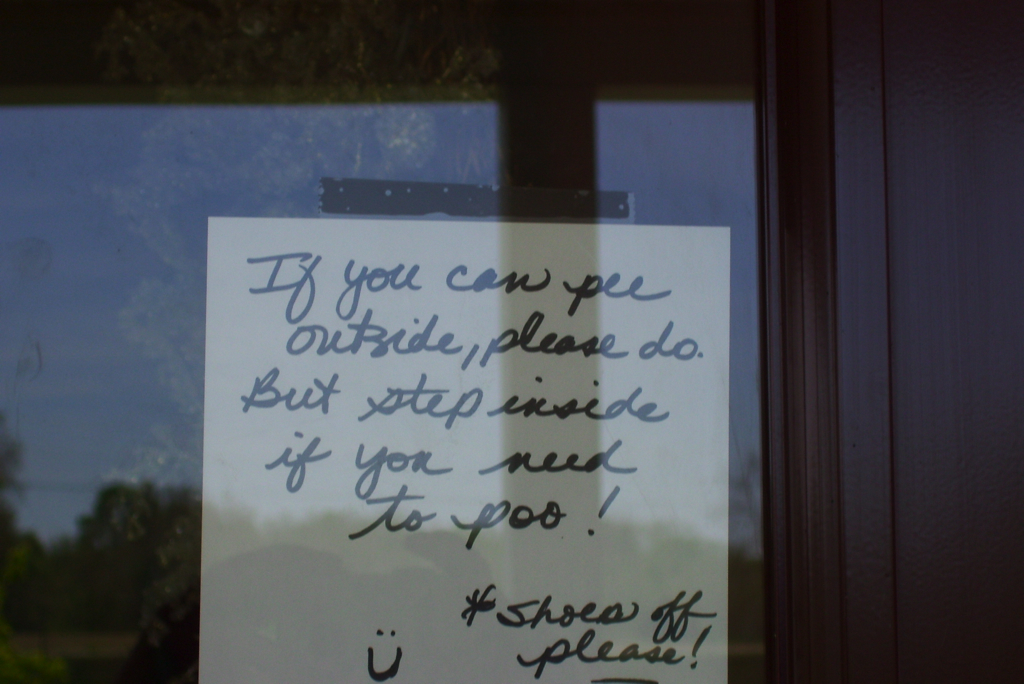 If you can pee
outside, please do.
But step inside
if you need
to poo!
* Shoes off
please!